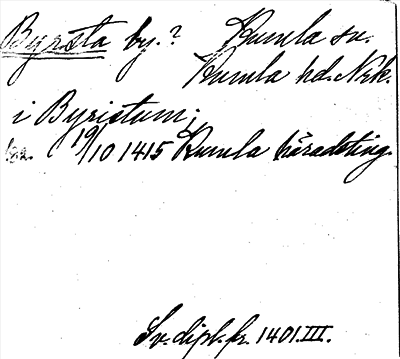 Byrsta by.? Kumla sn.
Kumla hd. Nrk.
i Byristum;
19/10 1415 Kumla häradsting.
Sv. dipl. fr. 1401. III.